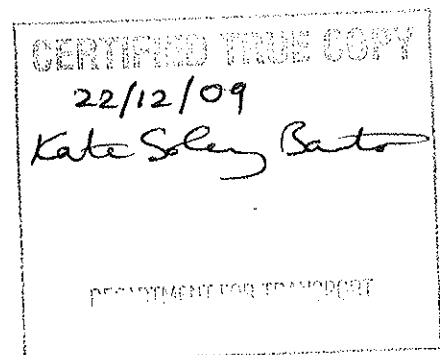 CERTIFIED TRUE COPY
22/12/09
Kate
DEPARTMENT FOR TRANSPORT